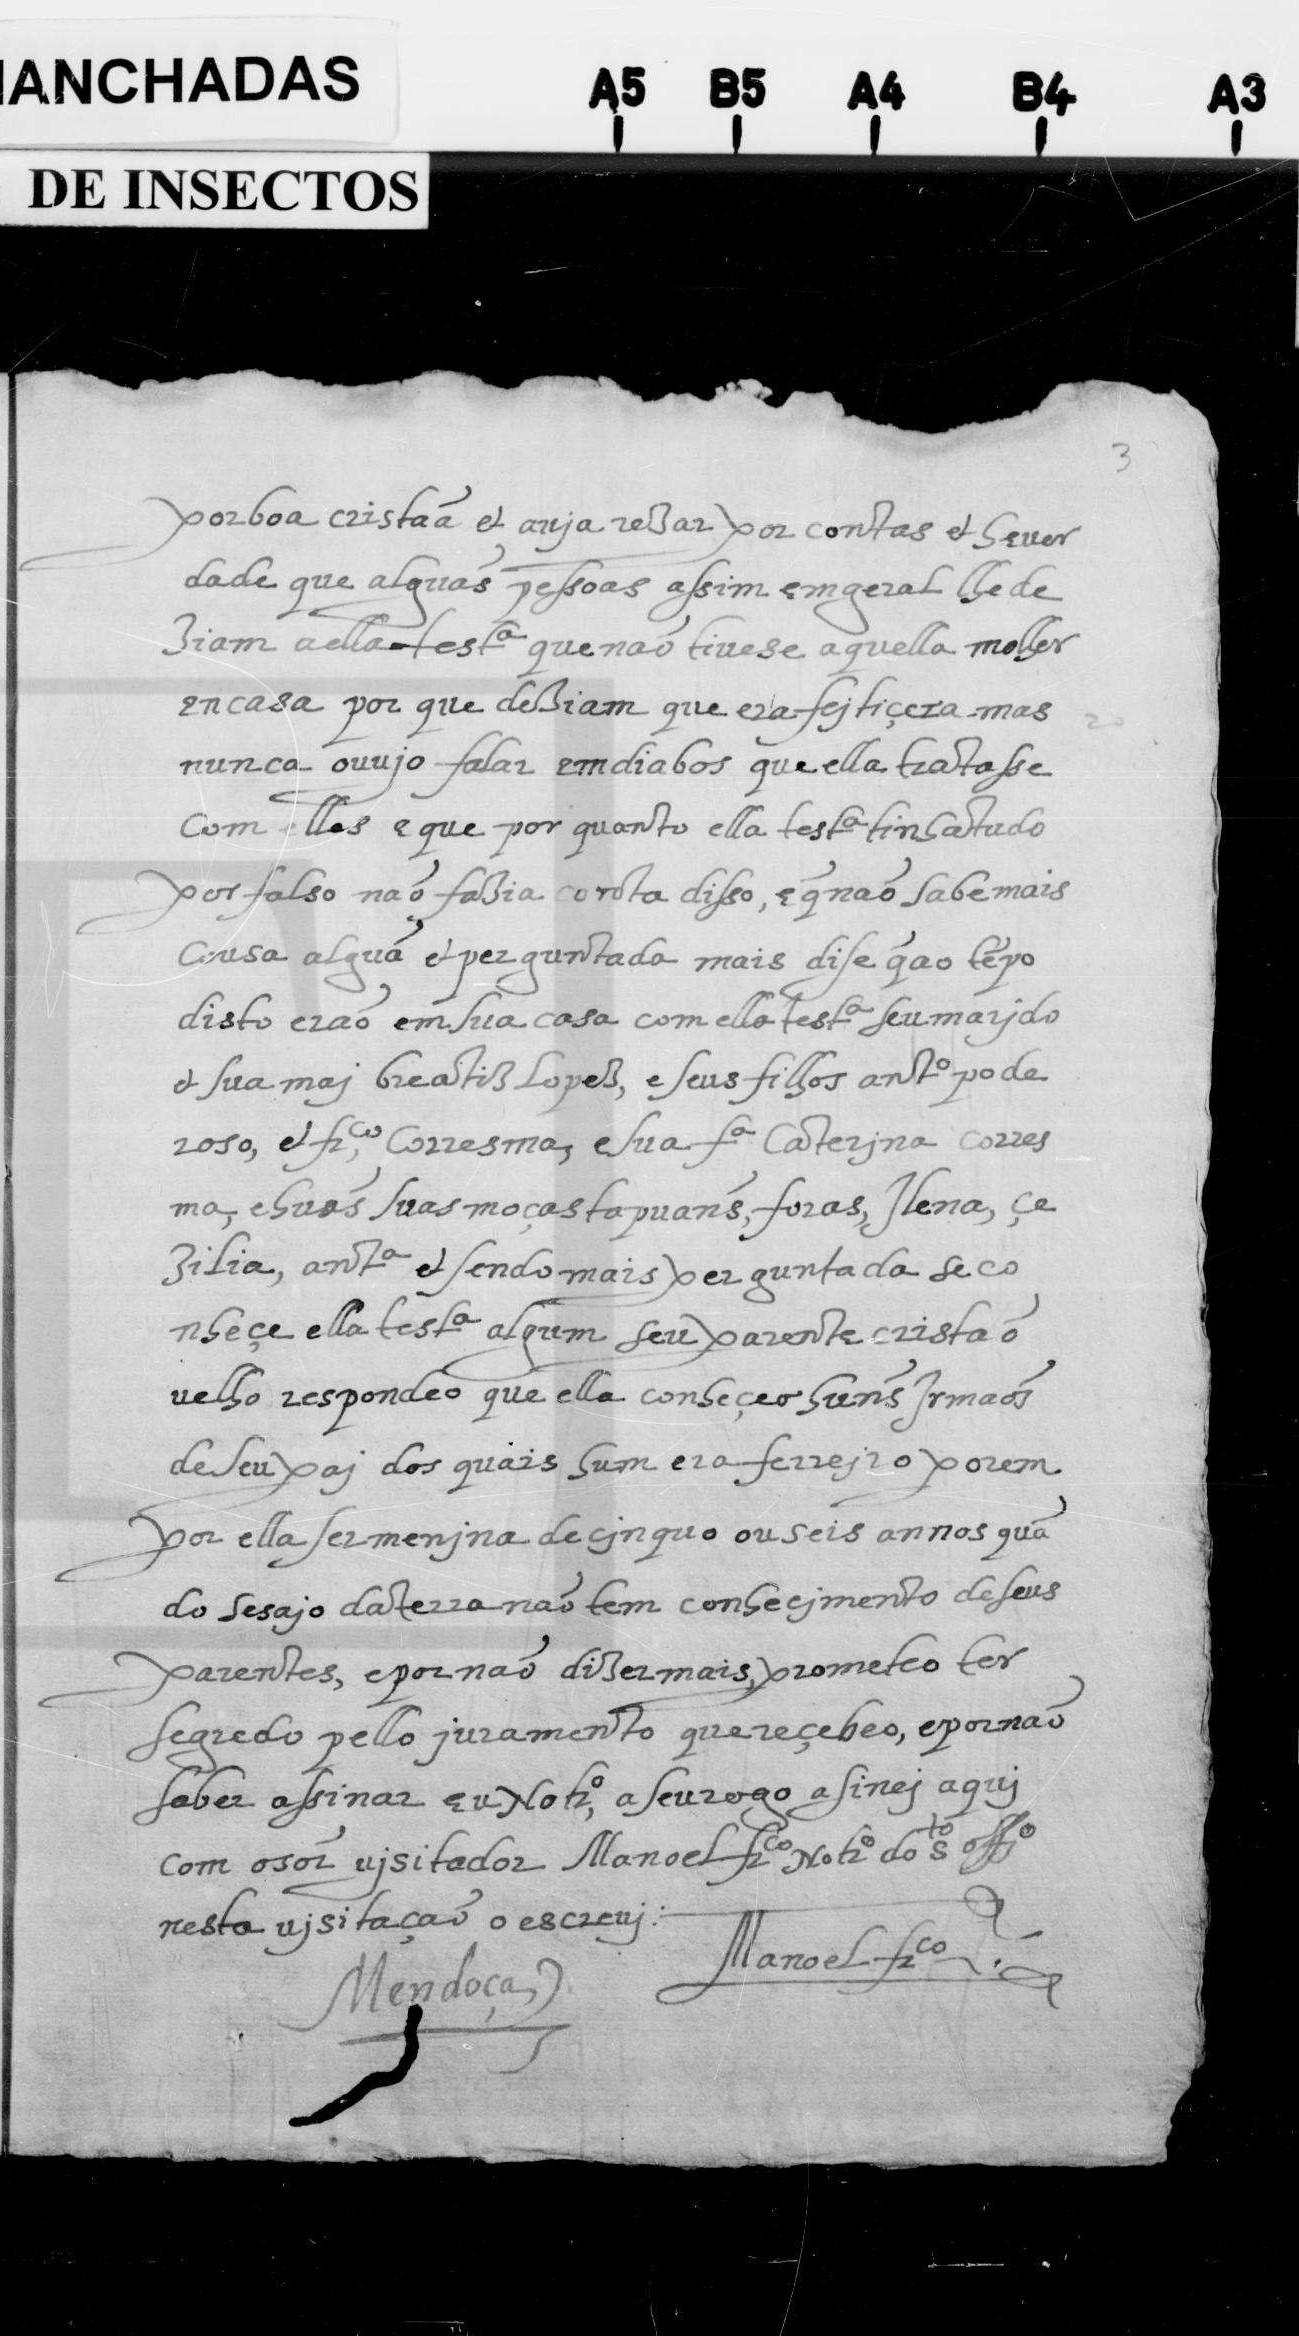 MANCHADAS
A5 B5 A4 B4 A3
DE INSECTOS
3
por boa cristaã et auja rezar por contas et he uer
dade que alguãs pessoas assim em geral lhe de
ziam a ella testª que naõ tiuese aquella molher
en casa por que deziam que era fejtiçera mas
nunca ouujo falar em diabos que ella tratasse
Com elles e que por quanto ella testª tinha tudo
por falso naõ fazia conta disso, e q̃ naõ sabe mais
Cousa alguã et perguntada mais dise q̃ ao tẽpo
disto eraõ em sua casa com ella testª seu marjdo
et sua maj breatiz Lopez, e seus filhos antº pode
roso, et frco Corresma, e sua fª Caterjna Corres
ma, e huãs suas moças tapuans, foras, Jlena, çe
zilia, antª et sendo mais perguntada se co
nheçe ella testª algum seu parente cristaõ
velho respondeo que ella conheçeo huns Jrmaõs
de seu paj dos quais hum era ferrejro porem
por ella ser menjna de cjnquo ou seis annos quã
do se sajo da terra naõ tem conhecjmento de seus
parentes, e por naõ dizer mais, prometeo ter
segredo pello juramento que reçebeo, e por naõ
saber assinar eu Notrº, a seu rogo asinej aquj
com o sõr ujsitador Manoel frco Notrº do sto offº
nesta ujsitaçaõ o escreuj:
Manoel frco
Mendoça